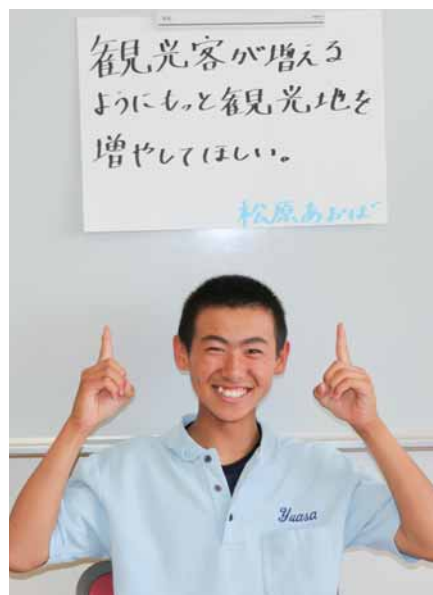 観光客が増える
ようにもっと観光地を
増やしてほしい。
松原あおば
Yuasa